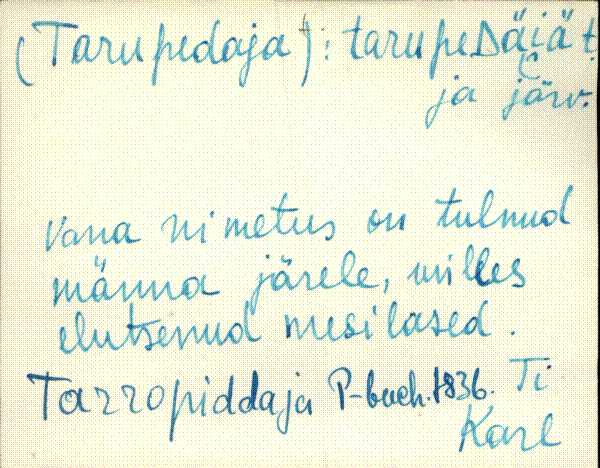 (Tarupedaja): tarupeDäiät.
ja järv.
Vana nimetus on tulnud
männa järele, milles
elutsenud mesilased.
Tarropiddaja P-buch. 1836. Ti
Karl